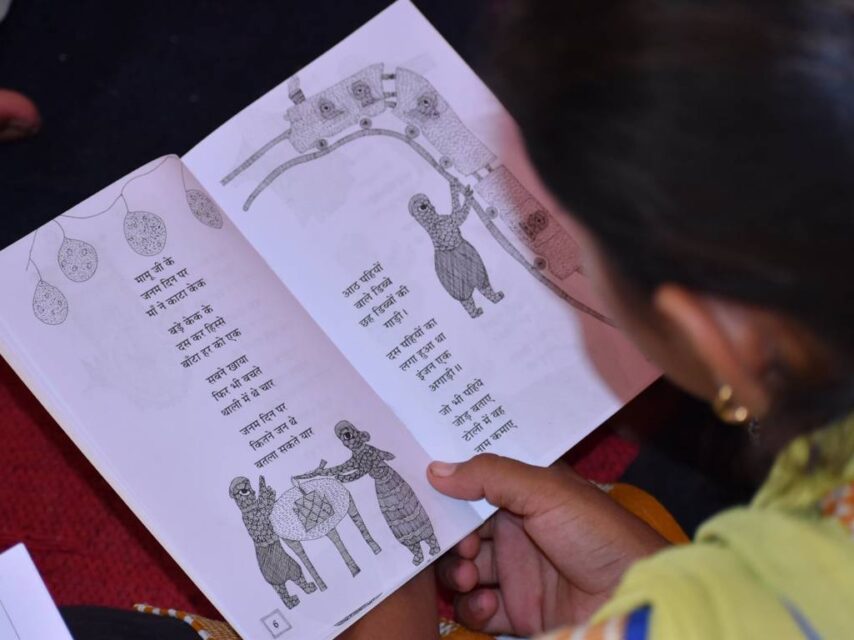 मामू जी के
जनम दिन पर
माँ ने काटा केक
बड़े केक के
दस कर हिस्से
बाँटा हर को एक
सबने खाया
फिर भी बचते
थाली में थे चार
जनम दिन पर
कितने जन थे
बतला सकते यार
6
आठ पहियों
वाले डिब्बे
छह डिब्बों की
गाड़ी।
दस पहियों का
लगा हुआ था
इंजन एक
अगाड़ी॥
जो भी पहिये
जोड़ बताए
टोली में वह
नाम कमाए